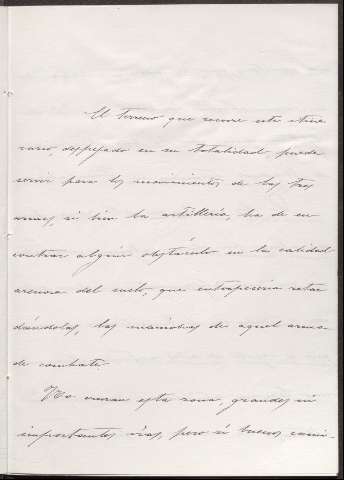 El terreno que recorre este itine
rario, despejado en su totalidad puede
servir para los movimientos de las tres
armas, si bien la artillería, ha de en
contrar algún obstáculo en la calidad
arenosa del suelo, que entorpecería retar
dándolas, las maniobras de aquel arma
de combate.
No cruzan esta zona, grandes ni
importantes vías, pero si buenos cami-